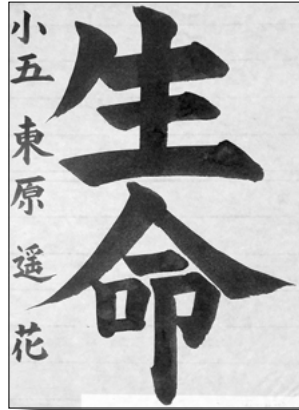 生命
小五 東原 遥花